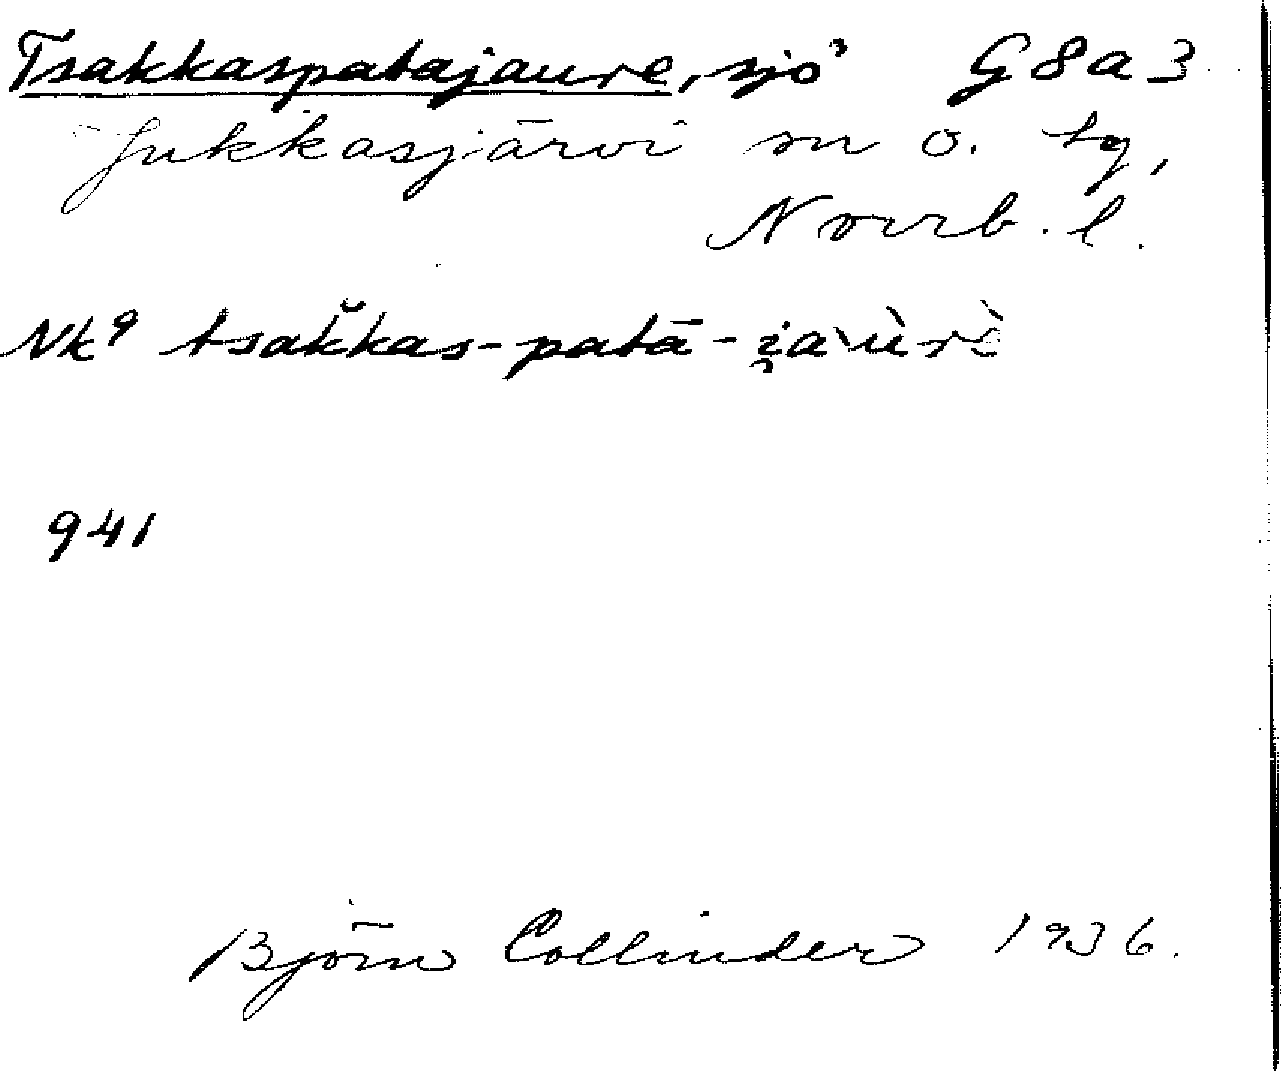 Tsakkaspatajaure, sjö G 8 a 3
Jukkasjärvi sn o. tg,
Norrb. l.
Nk⁹ tsak̆kas-patā-i̯a\ùrè
941
Björn Collinder 1936.